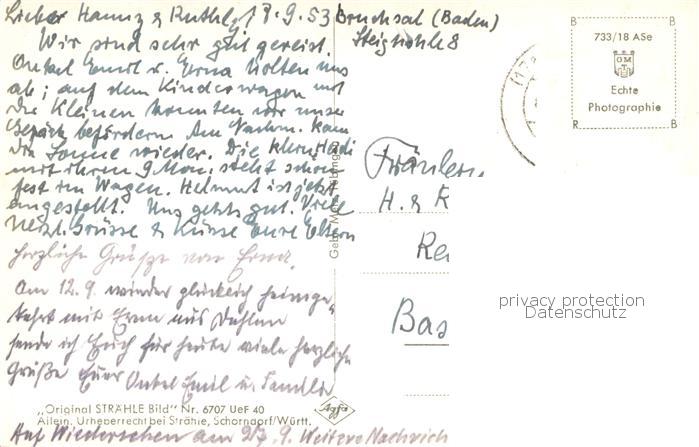 Lieber Hanny & Ruthl, 18.9.53 Bruchsal (Baden)
Steighohle 8
Wir sind sehr gut gereist.
Onkel Emil u. Erna holten uns
ab; auf dem Kinderwagen mit
der Kleinen konnten wir unser
Gepäck befördern. Am Nachm. kam
die Sonne wieder. Die kleine
mit ihren 9 Mon. steht schon
fest im Wagen. Helmut ist jetzt
eingestellt. Uns gehts gut. Viele
herzl. Grüsse & Küsse Eure Eltern
herzliche Grüße von Erna.
Am 12.9. wieder glücklich heimge-
kehrt mit Erna aus
sende ich Euch für heute viele herzliche
Grüße Euer Onkel Emil u. Familie
„Original STRÄHLE Bild" Nr. 6707 UeF 40
Allein. Urheberrecht bei Strähle, Schorndorf/Württ.
Auf Wiedersehen am 9. Weitere Nachrich
Agfa
Gebr. Metz, Tübingen
B B
733/18 ASe
OM
Echte
Photographie
R B
Fräulein
H. & R
Re
Bas
privacy protection
Datenschutz